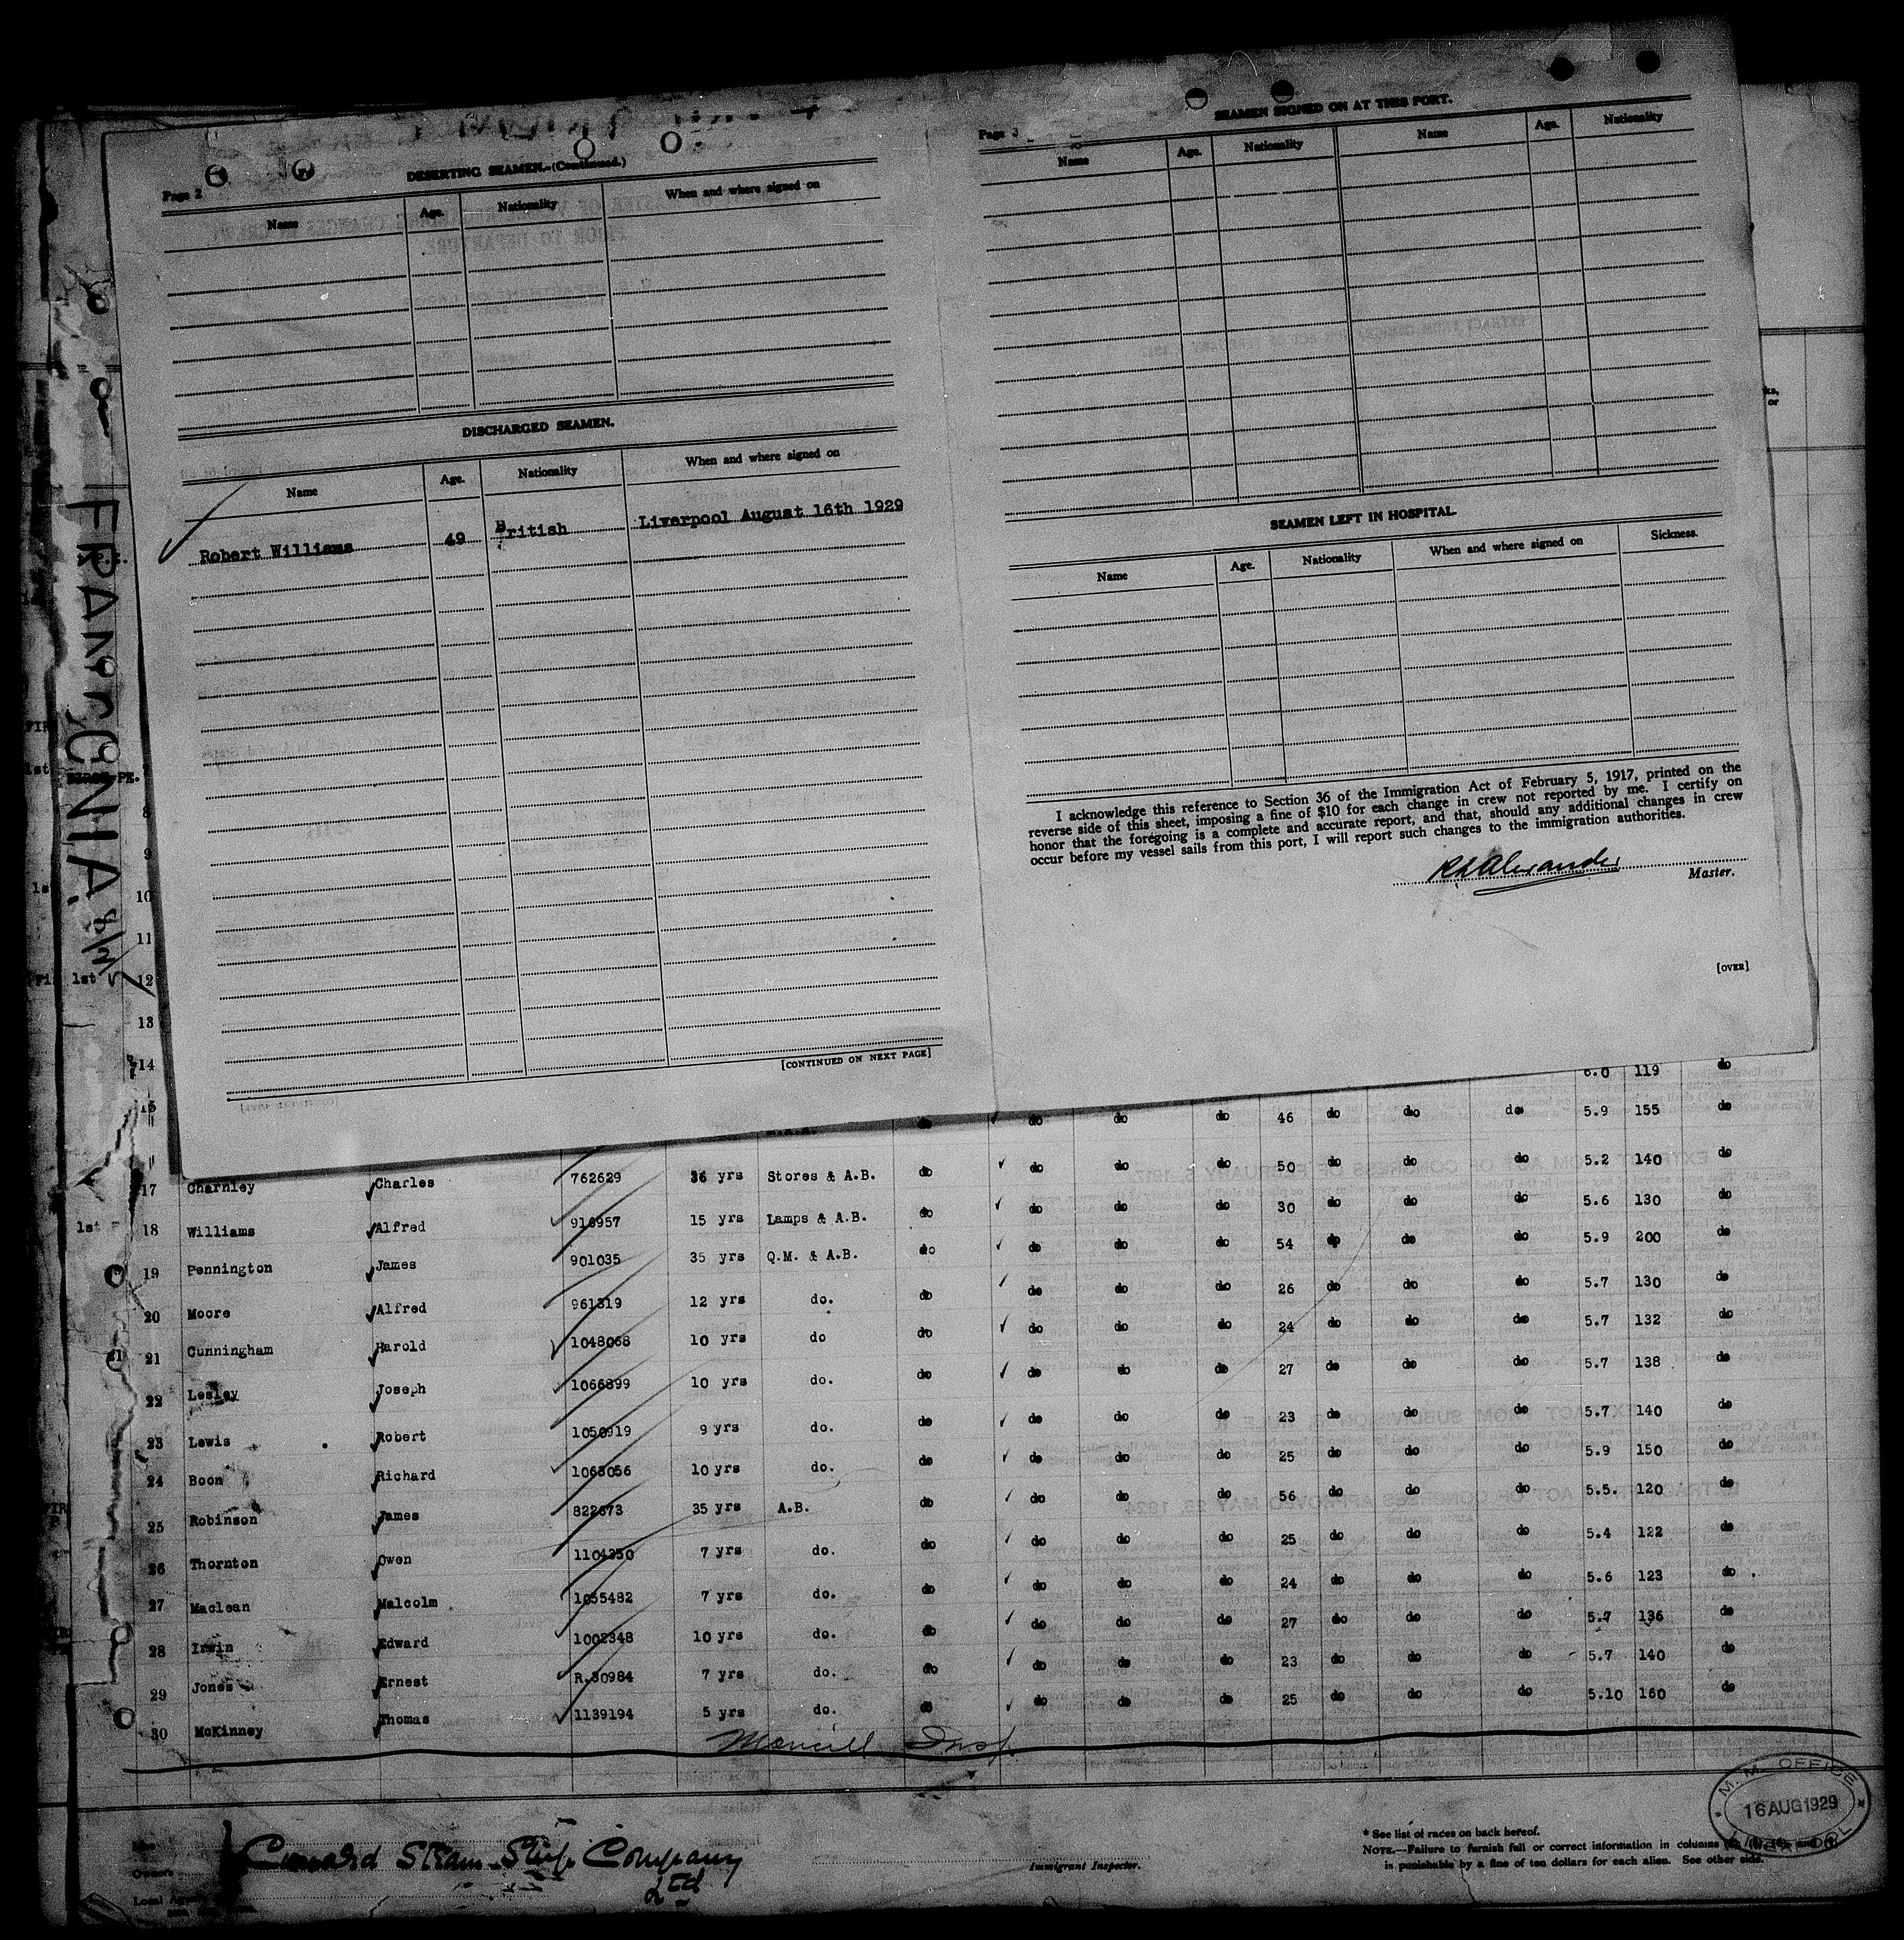 Page 2
DESERTING SEAMEN.-(Continued.)
Name Age. Nationality When and where signed on
DISCHARGED SEAMEN.
Name Age. Nationality When and where signed on
Robert Williams 49 British Liverpool August 16th 1929
[CONTINUED ON NEXT PAGE]
Page 3
SEAMEN SIGNED ON AT THIS PORT.
Name Age. Nationality Name Age. Nationality
SEAMEN LEFT IN HOSPITAL
Name Age. Nationality When and where signed on Sickness.
I acknowledge this reference to Section 36 of the Immigration Act of February 5, 1917, printed on the
reverse side of this sheet, imposing a fine of $10 for each change in crew not reported by me. I certify on
honor that the foregoing is a complete and accurate report, and that, should any additional changes in crew
occur before my vessel sails from this port, I will report such changes to the immigration authorities.
Master.
[OVER]
FRANCONIA.
8
9
10
11
12
13
14 6.0 119 do
15 do do do do 46 do do do 5.9 155 do
17 Charnley Charles 762629 36 yrs Stores & A.B. do do do do 50 do do do 5.2 140 do
18 Williams Alfred 916957 15 yrs Lamps & A.B. do do do do 30 do do do 5.6 130 do
19 Pennington James 901035 35 yrs Q.M. & A.B. do do do do 54 do do do 5.9 200 do
20 Moore Alfred 961319 12 yrs do. do do do do 26 do do do 5.7 130 do
21 Cunningham Harold 1048068 10 yrs do do do do do 24 do do do 5.7 132 do
22 Lesley Joseph 1066399 10 yrs do. do do do do 27 do do do 5.7 138 do
23 Lewis Robert 1050919 9 yrs do. do do do do 23 do do do 5.7 140 do
24 Boon Richard 1063056 10 yrs do. do do do do 25 do do do 5.9 150 do
25 Robinson James 822673 35 yrs A.B. do do do do 56 do do do 5.5. 120 do
26 Thornton Owen 1104350 7 yrs do. do do do do 25 do do do 5.4 122 do
27 Maclean Malcolm 1055482 7 yrs do. do do do do 24 do do do 5.6 123 do
28 Irwin Edward 1002348 10 yrs do. do do do do 27 do do do 5.7 136 do
29 Jones Ernest R.30984 7 yrs do. do do do do 23 do do do 5.7 140 do
30 McKinney Thomas 1139194 5 yrs do. do do do do 25 do do do 5.10 160 do
Insp
Cunard Steam-Ship Company
Ltd
Owners
Local
Immigrant Inspector.
* See list of races on back hereof.
NOTE.—Failure to furnish full or correct information in columns
is punishable by a fine of ten dollars for each alien. See other side.
M. M. OFFICE
16 AUG 1929